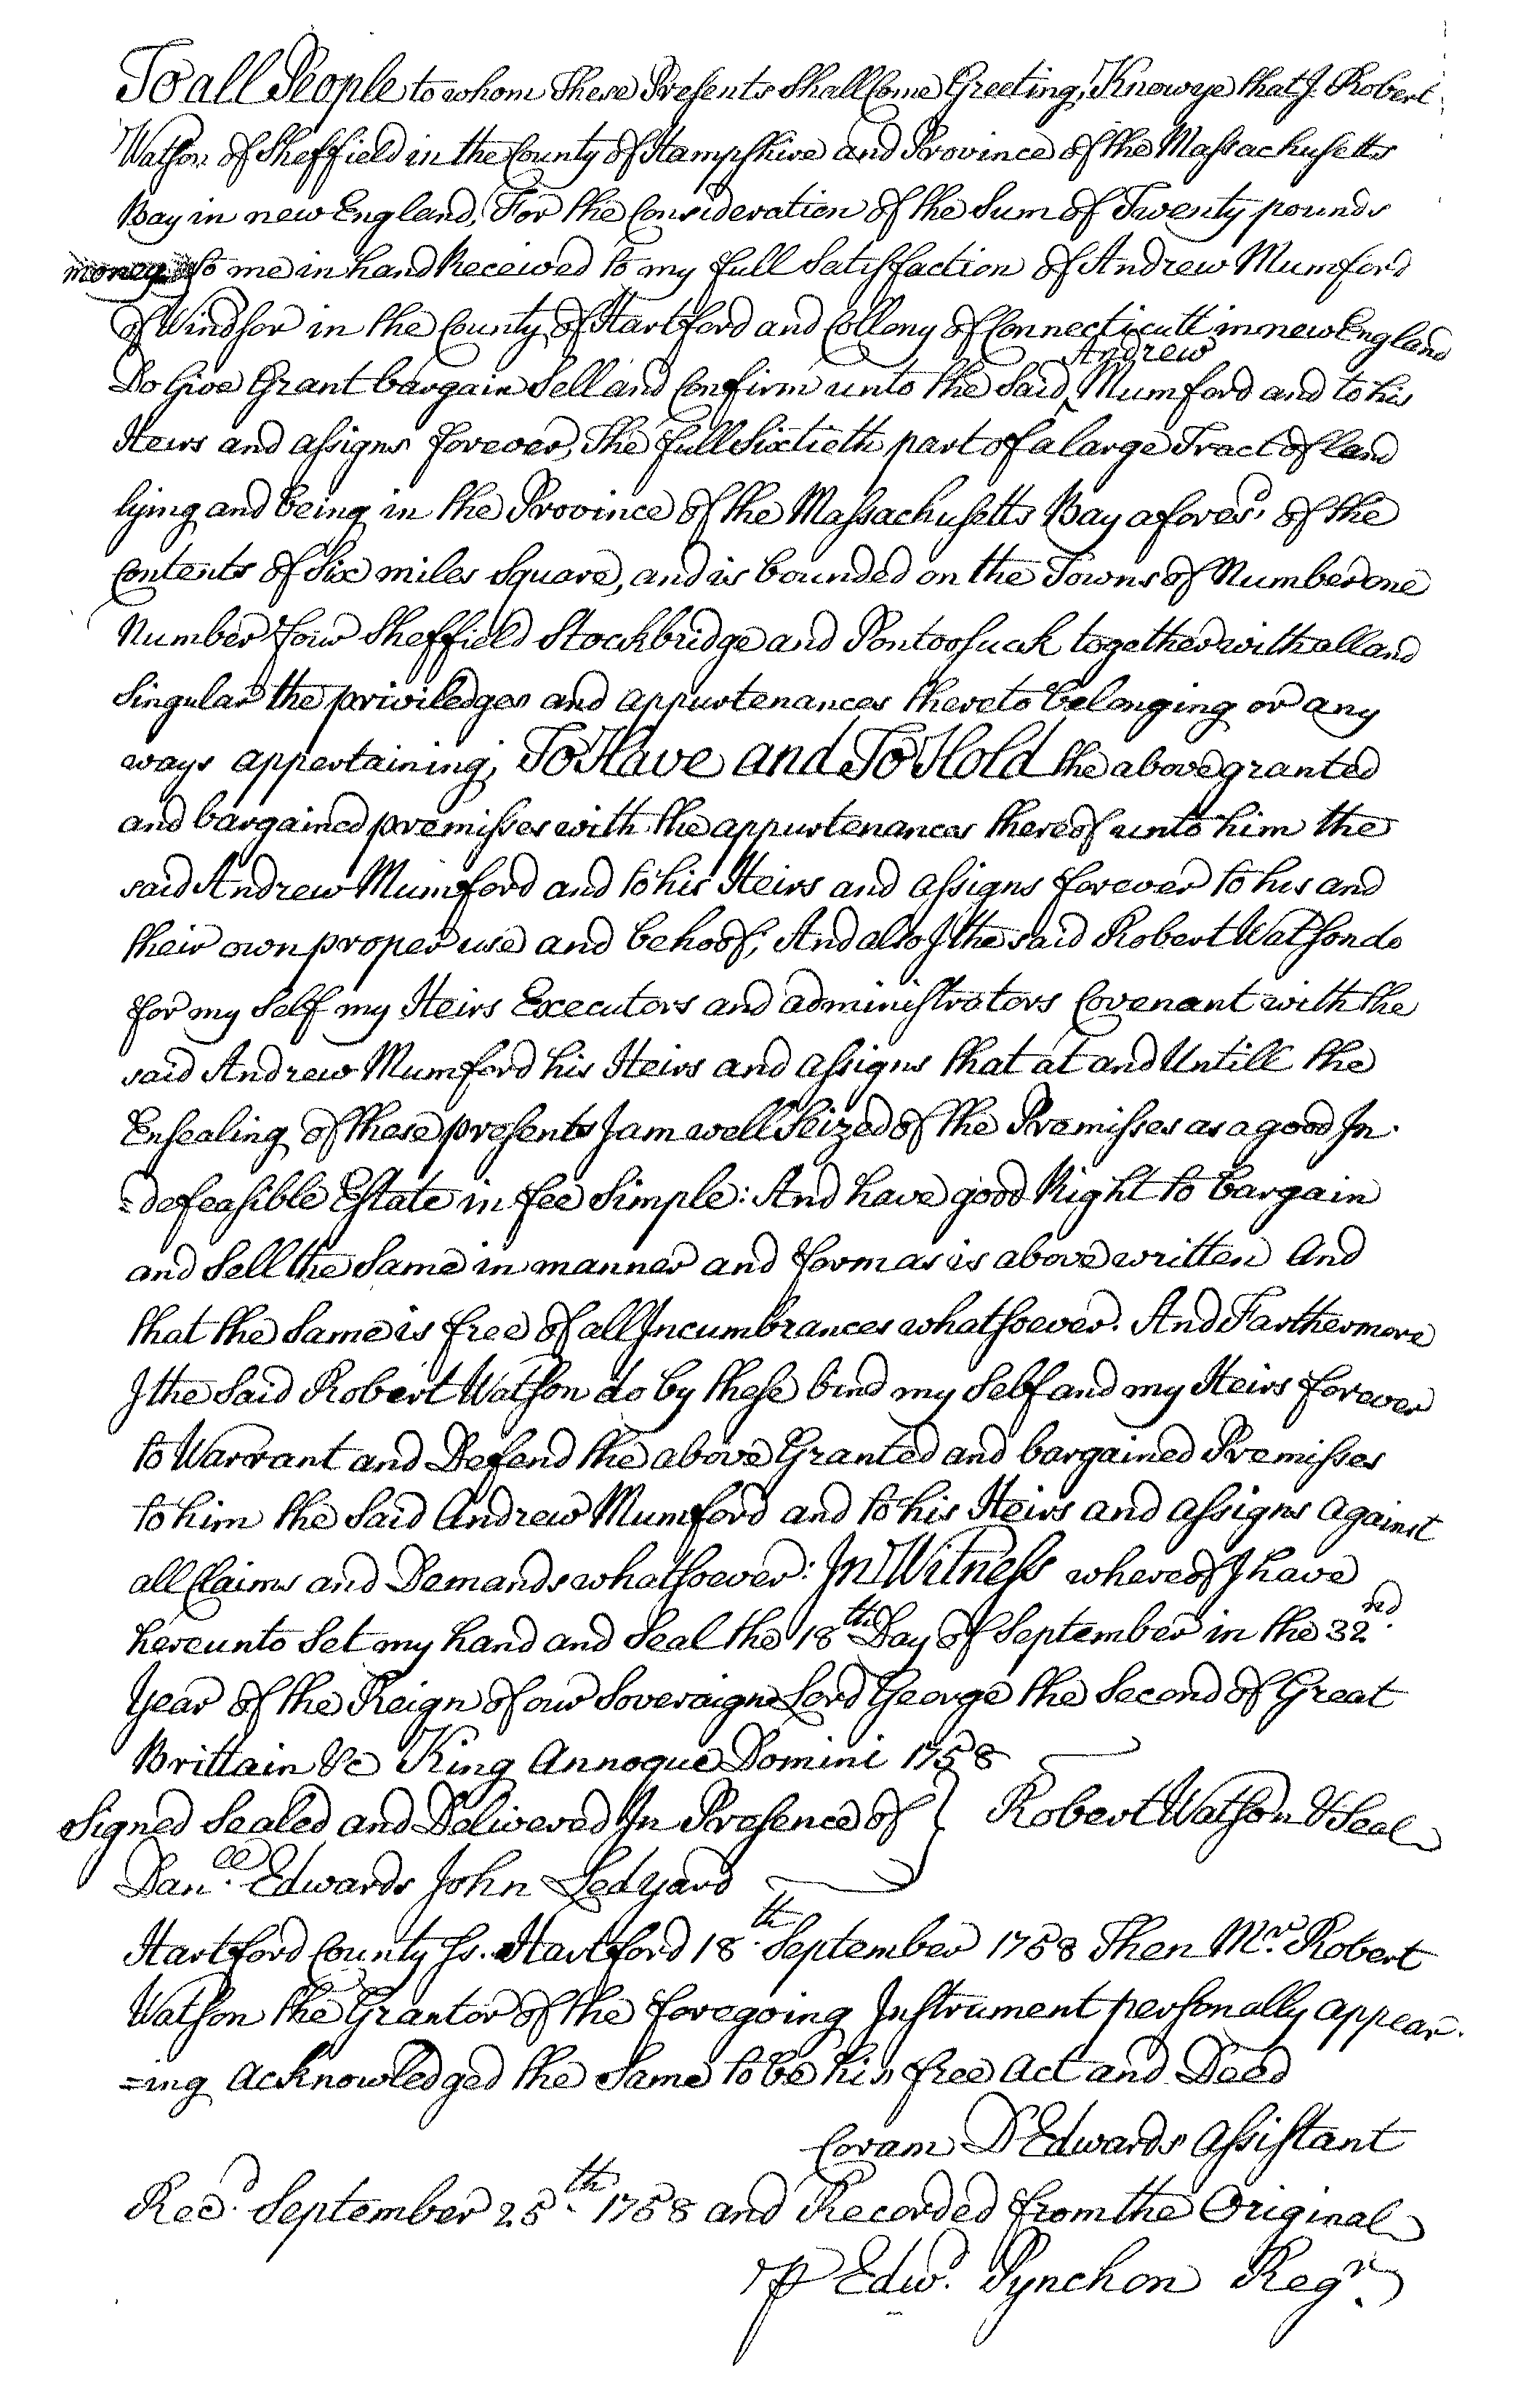 To all People to whom These Presents Shall Come Greeting, Know ye that I Robert
Watson of Sheffield in the County of Hampshire and Province of the Massachusetts
Bay in new England, For the Consideration of the Sum of Twenty pounds
money to me in hand Received to my full Satisfaction of Andrew Mumford
of Windsor in the County of Hartford and Collony of Connecticutt in new England
Do Give Grant bargain Sell and Confirm unto the Said ^Andrew Mumford and to his
Heirs and assigns forever, The full Sixtieth part of a large Tract of land
lying and being in the Province of the Massachusetts Bay afores.d of the
Contents of Six miles Square, and is bounded on the Towns of Number one
Number four Sheffield Stockbridge and Pontoosuck together with all and
Singular the priviledges and appurtenances thereto belonging or any
ways appertaining, To Have and To Hold the above granted
and bargained premisses with the appurtenances thereof unto him the
said Andrew Mumford and to his Heirs and assigns forever to his and
their own proper use and behoof; And also I the said Robert Watson do
for my Self my Heirs Executors and administrators Covenant with the
said Andrew Mumford his Heirs and assigns that at and Untill the
Ensealing of these presents I am well Seized of the Premisses as a good In
=defeasible Estate in fee Simple: And have good Right to bargain
and Sell the Same in manner and form as is above written And
that the Same is free of all Incumbrances whatsoever. And Farthermore
I the Said Robert Watson do by these bind my Self and my Heirs forever
to Warrant and Defend the above Granted and bargained Premisses
to him the Said Andrew Mumford and to his Heirs and assigns against
all Claims and Demands whatsoever: In Witness whereof I have
hereunto Set my hand and Seal the 18th Day of September in the 32nd.
Year of the Reign of our Soveraign Lord George the Second of Great
Brittain &c King Annoque Domini 1758
Signed Sealed and Delivered In Presence of } Robert Watson & Seal
Dan.ll Edwards John Ledyard
Hartford County Ss. Hartford 18th September 1758 Then Mr. Robert
Watson the Grantor of the foregoing Instrument personally appear.
=ing acknowledged the Same to be his free act and Deed
Coram D Edwards assistant
Rec.d September 25th 1758 and Recorded from the Original
⅌ Edw.d Pynchon Reg.r